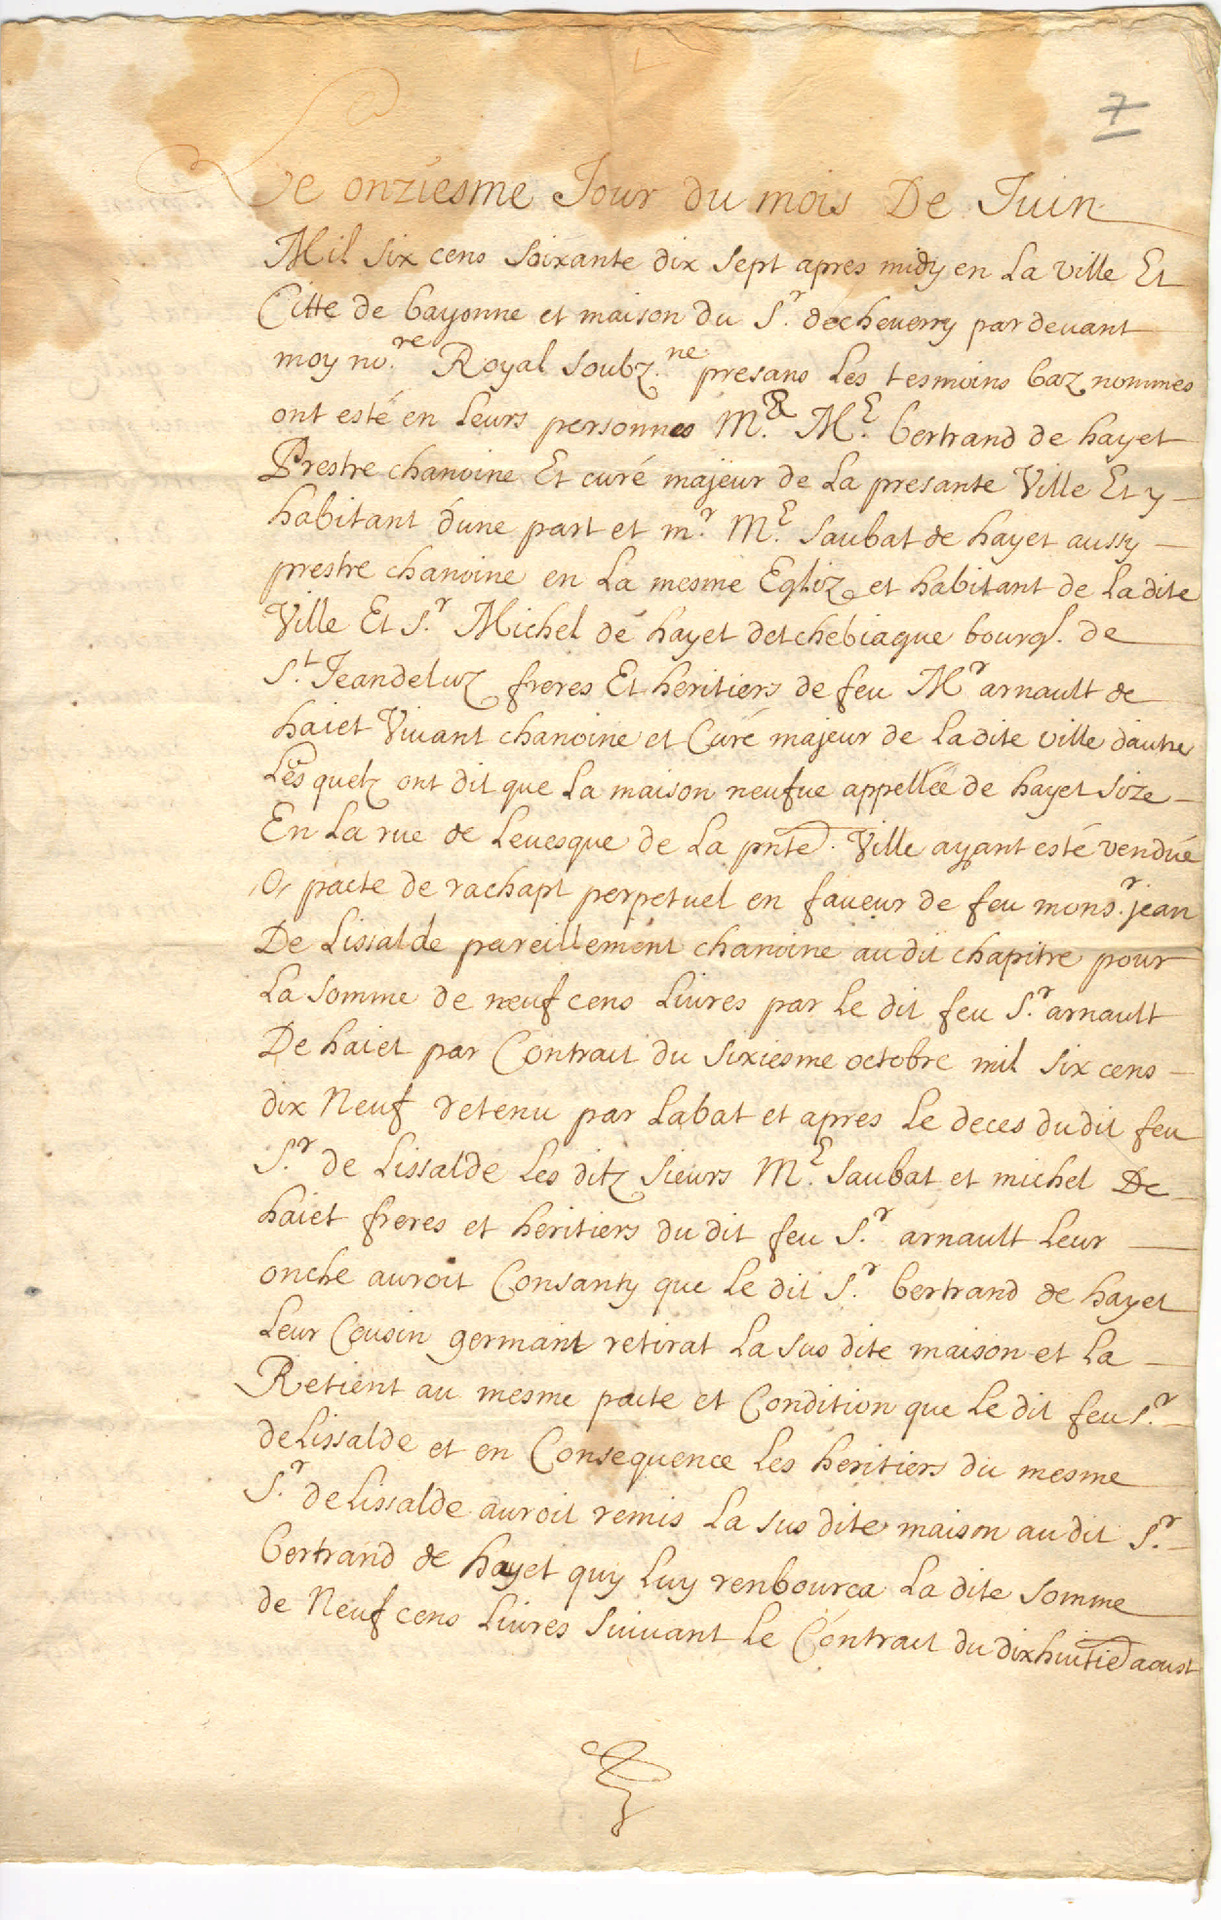 7
Le onziesme Jour du mois De Juin
Mil six cens soixante dix sept apres midy en La ville Et
Citte de bayonne et maison du S.r decheverry pardevant
moy no.re Royal soubz.ne presans Les tesmoins baz nommes
ont esté en Leurs personnes M.R M.E bertrand de hayet
Prestre chanoine Et curé majeur de La presante Ville Et y
habitant dune part et m.r M.E saubat de hayet aussy
prestre chanoine en La mesme Eglize et habitant de Ladite
Ville Et S.r Michel de hayet detchebiague bourg. de
S.t Jeandeluz freres Et heritiers de feu M.r arnault de
haiet Vivant chanoine et Curé majeur de Ladite ville dautre
Lesquelz ont dit que La maison neufve appellée de hayet size
En La rue de Levesque de La pnte. Ville ayant esté vendue
O pacte de rachapt perpetuel en faveur de feu mons.r jean
De Lissalde pareillement chanoine audit chapitre pour
La somme de neuf cens Livres par Le dit feu S.r arnault
De haiet par Contrait du sixiesme octobre mil six cens
dix Neuf retenu par Labat et apres Le deces dudit feu
S.r de Lissalde Les ditz sieurs M.E saubat et michel De
haiet freres et heritiers du dit feu S.r arnault Leur
oncle auroit Consanty que Le dit S.r bertrand de hayet
Leur Cousin germaint retirat La sus dite maison et La
Retient au mesme pacte et Condition que Le dit feu S.r
deLissalde et en Consequence Les heritiers du mesme
S.r deLissalde auroit remis La sus dite maison au dit S.r
bertrand de hayet quy Luy renbourca La dite somme
de Neuf cens Livres suivant Le Contrait du dixhuitie aoust